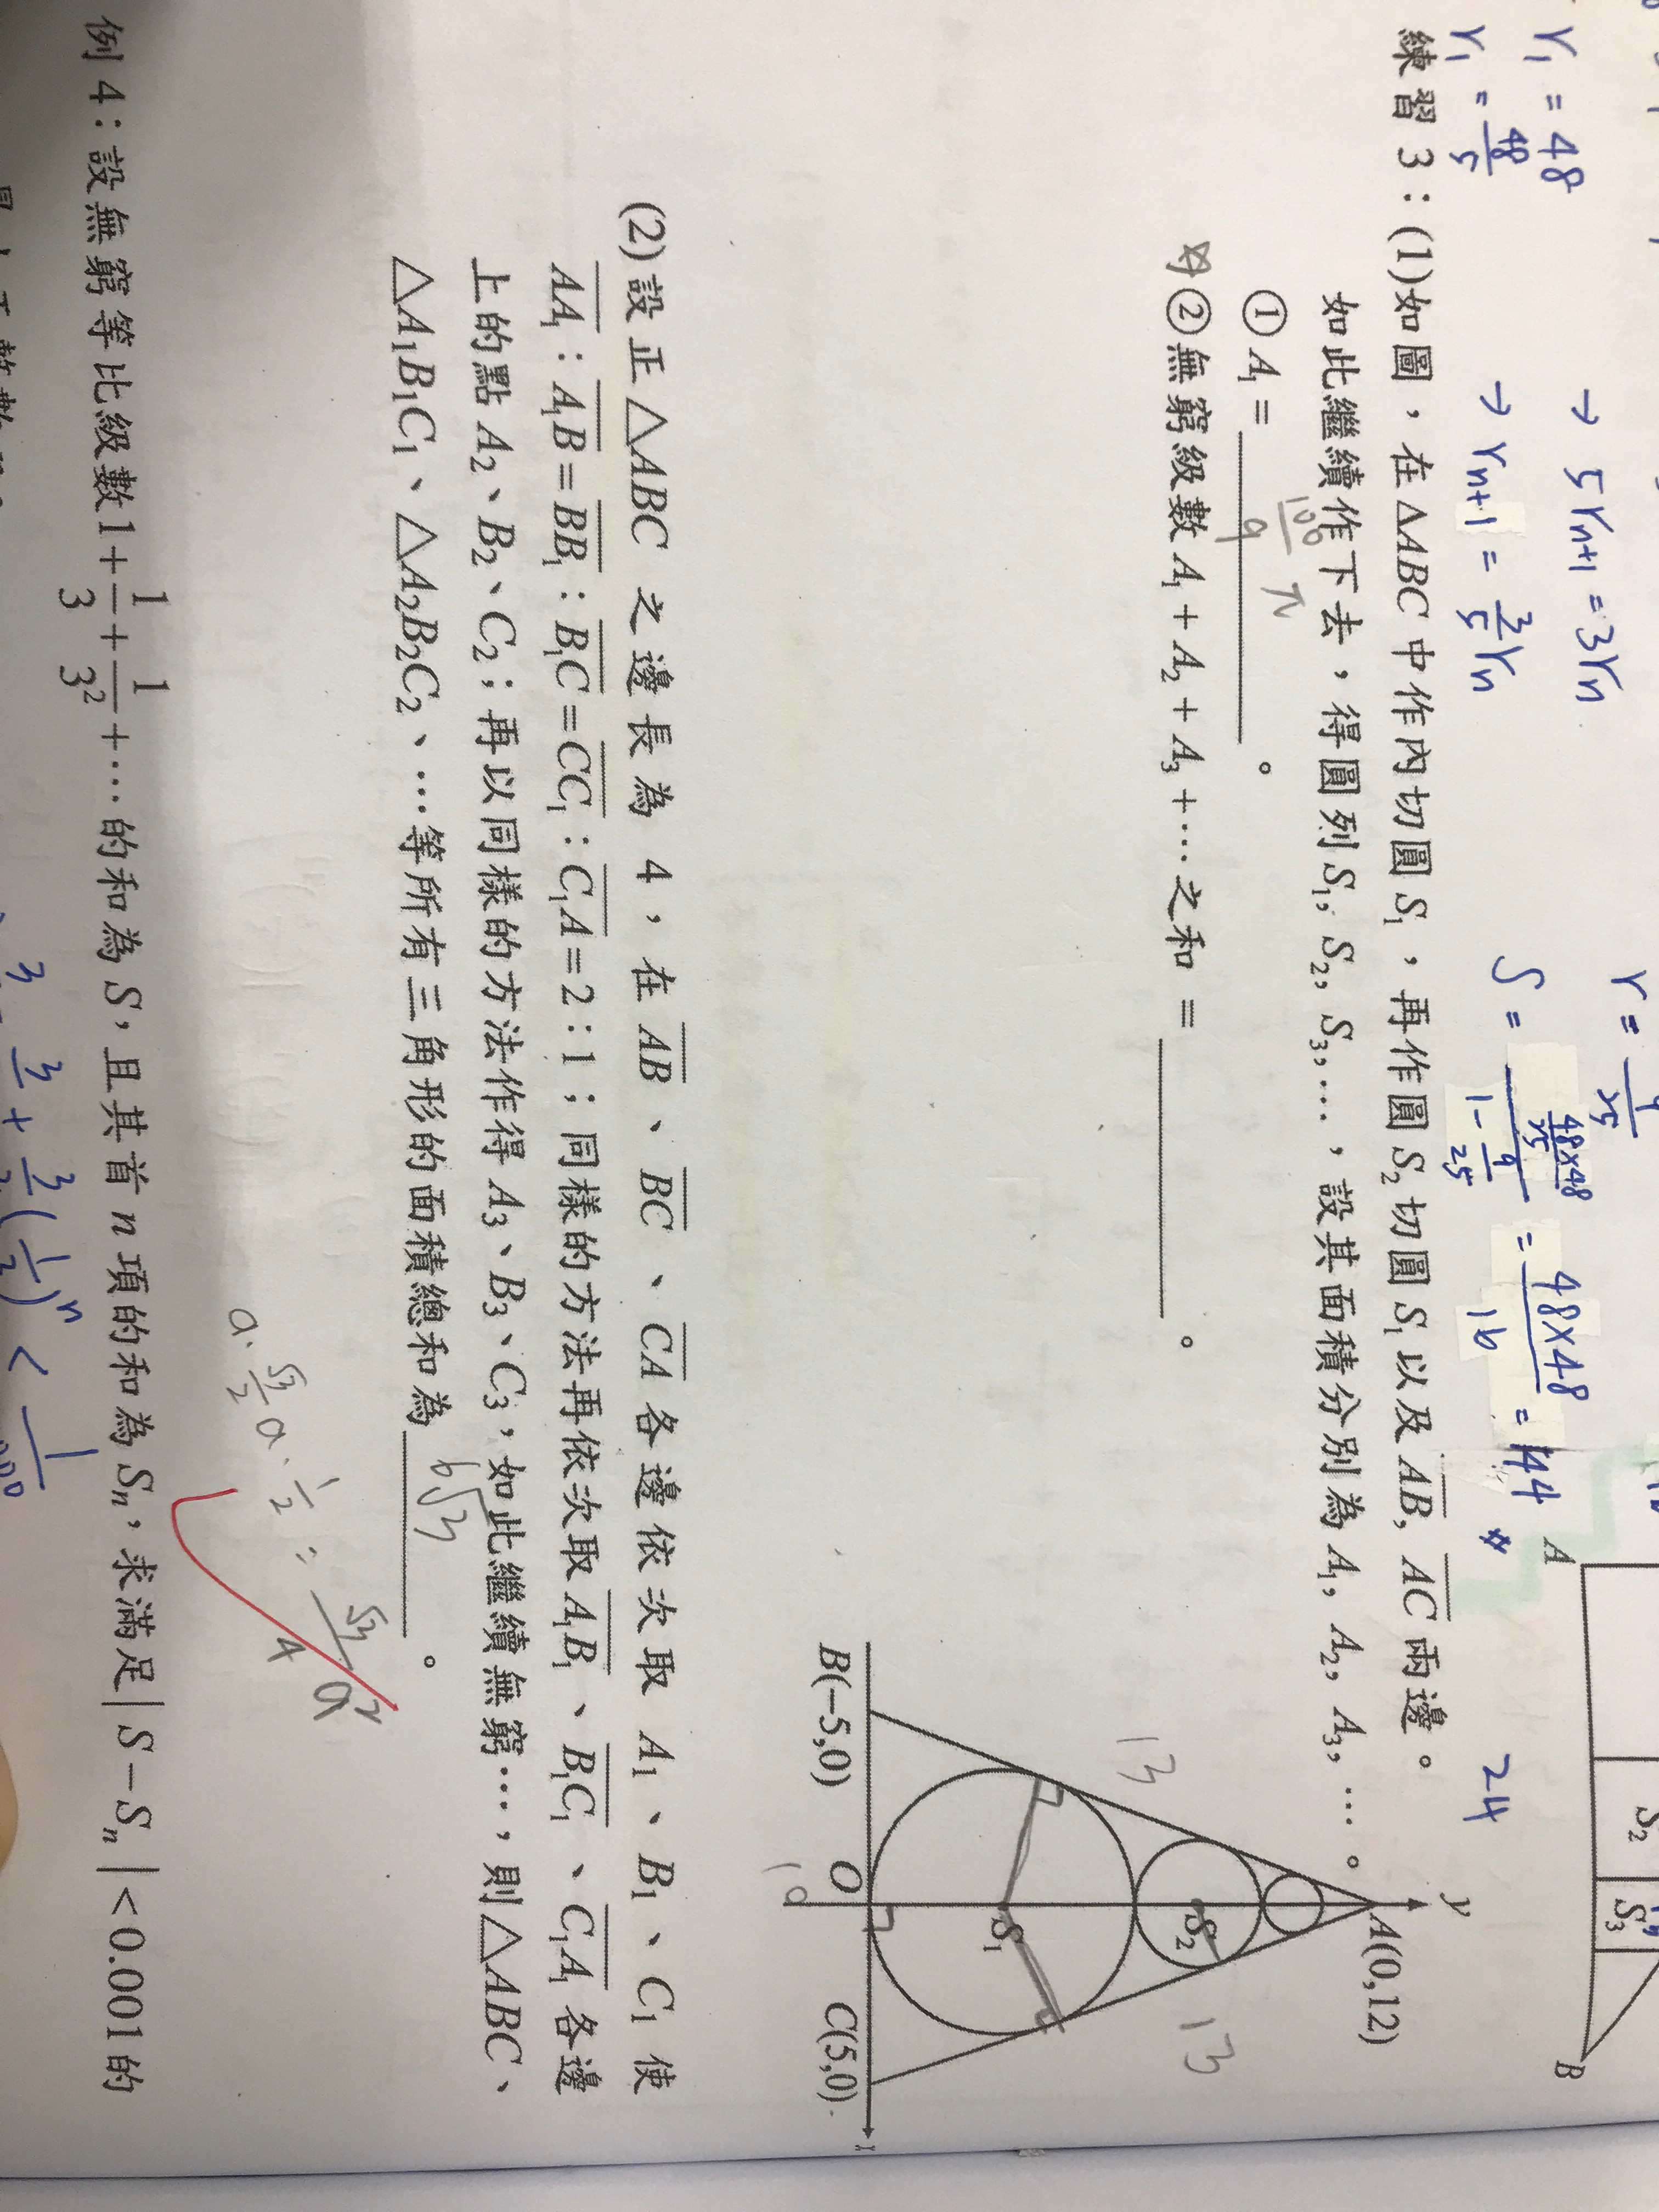 r₁ = 48 → 5rₙ₊₁ = 3rₙ
r₁ = 48/5 → rₙ₊₁ = 3/5 rₙ
S = (48×48/25)/(1 − 9/25) = 48×48/16 = 144
24
A
B
S₂
S₃
練習 3：(1)如圖，在△ABC 中作內切圓 S₁，再作圓 S₂ 切圓 S₁ 以及 AB, AC 兩邊。
如此繼續作下去，得圓列 S₁, S₂, S₃,…，設其面積分別為 A₁, A₂, A₃, …。
① A₁ = 100/9 π 。
②無窮級數 A₁ + A₂ + A₃ + … 之和 = 。
y
A(0,12)
13
13
S₂
S₁
O
B(−5,0)
C(5,0)
x
10
(2)設正△ABC 之邊長為 4，在 AB、BC、CA 各邊依次取 A₁、B₁、C₁ 使
AA₁：A₁B = BB₁：B₁C = CC₁：C₁A = 2：1；同樣的方法再依次取 A₁B₁、B₁C₁、C₁A₁ 各邊
上的點 A₂、B₂、C₂；再以同樣的方法作得 A₃、B₃、C₃，如此繼續無窮…，則△ABC、
△A₁B₁C₁、△A₂B₂C₂、…等所有三角形的面積總和為 6√3 。
a·√3/2 a·1/2 = √3/4 a²
例 4：設無窮等比級數1+1/3+1/3²+…的和為 S，且其首 n 項的和為 Sₙ，求滿足|S−Sₙ|<0.001的